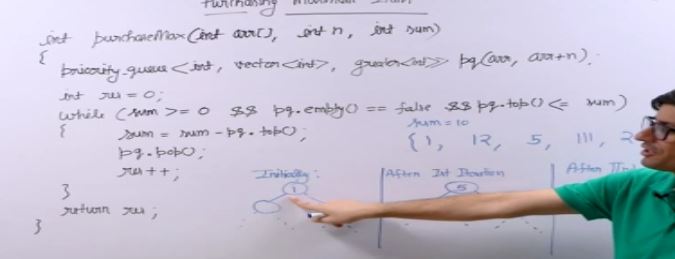 Purchasing Maximum Items
int purchaseMax(int arr[], int n, int sum)
{
priority_queue<int, vector<int>, greater<int>> pq(arr, arr+n);
int res = 0;
while (sum >= 0 && pq.empty() == false && pq.top() <= sum)
{
sum = sum - pq.top();
pq.pop();
res++;
}
return res;
}
sum = 10
{1, 12, 5, 111, 2
Initially:
1
After Ist Iteration
5
After IInd